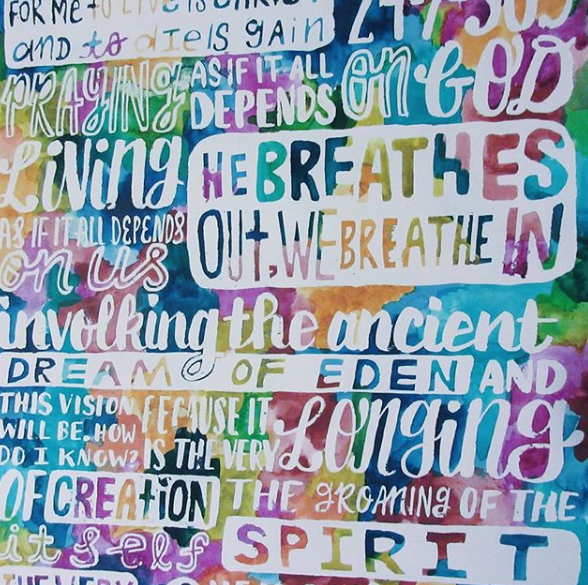 FOR ME to LIVE IS CHRIST
and to die IS gain
PRAYING
AS IF IT ALL
DEPENDS
on GOD
Living
AS IF IT ALL DEPENDS
on us
HE BREATHES
OUT, WE BREATHE IN
involking the ancient
DREAM OF EDEN AND
THIS VISION
WILL BE. HOW
DO I KNOW?
BECAUSE IT
IS THE VERY
Longing
OF CREATION
itself
THE groaning OF THE
SPIRIT
THE VERY